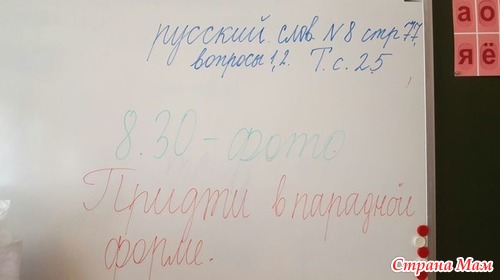 русский. слов. N 8 стр 77
вопросы 1, 2. Т. с. 25
8.30 - фото
Придти в парадной
форме.
а о
я ё
Страна Мам